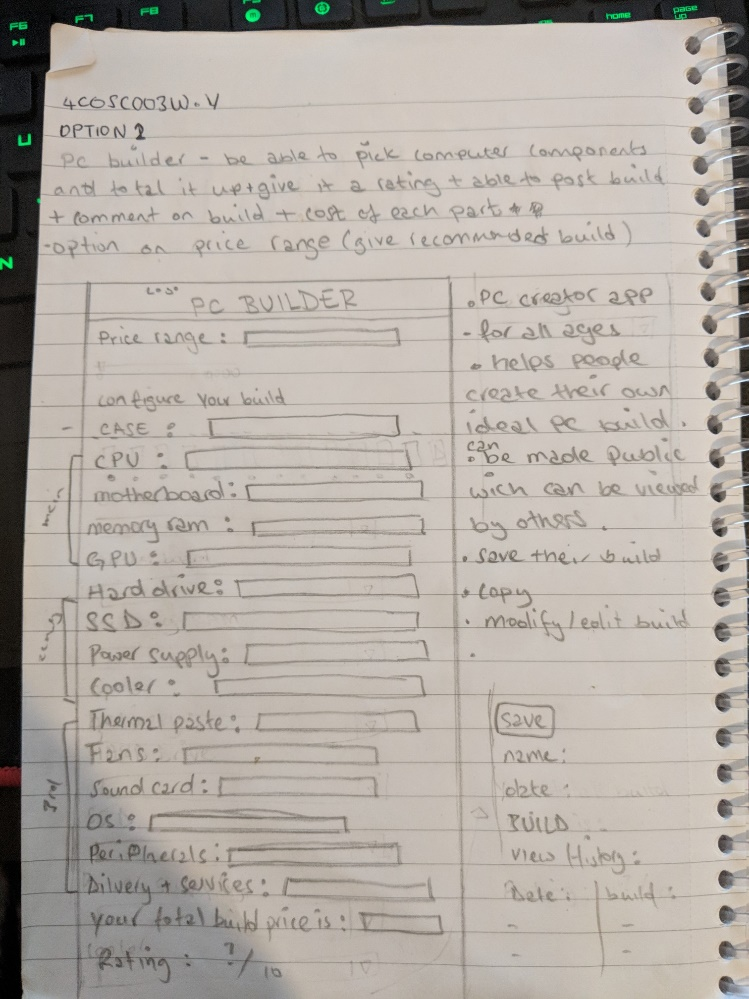 F6
F7
F8
home
page up
U
N
4COSC003W.V
OPTION 2
PC builder - be able to pick computer components
and total it up + give it a rating + able to post build
+ comment on build + cost of each part *
-option on price range (give recommended build)
Logo
PC BUILDER
Price range :
configure your build
- CASE :
CPU :
motherboard :
memory ram :
GPU :
Hard drive :
SSD :
Power supply :
Cooler :
Thermal paste :
Fans :
Sound card :
OS :
Peripherals :
Dilvery + services :
your total build price is :
Rating : ?/10
main
.PC creator app
- for all ages
• helps people
create their own
ideal PC build.
can
• be made public
wich can be viewed
by others.
• save their build
• copy
• modify/edit build
•
save
name :
date :
BUILD
view History :
Date : | build :
- | -
- | -